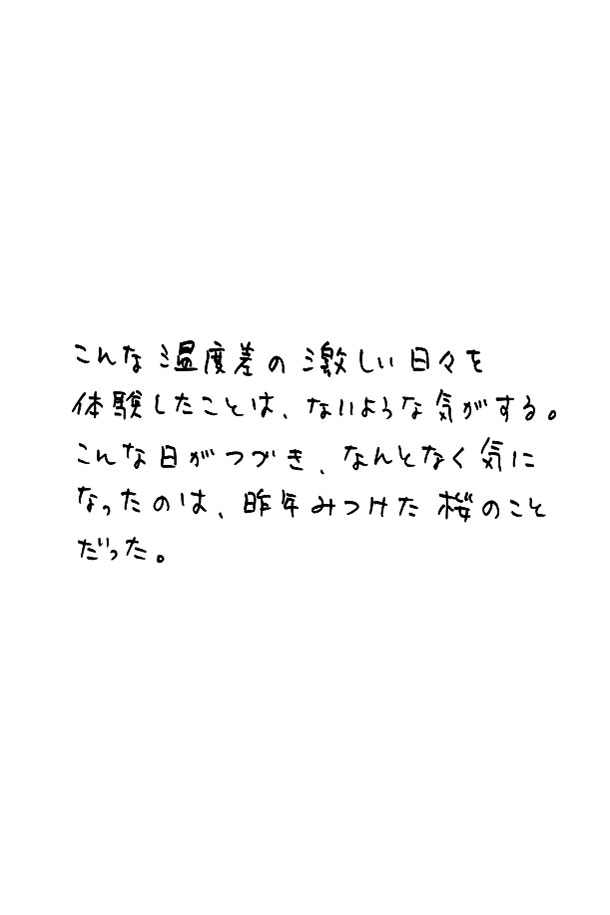 こんな温度差の激しい日々を
体験したことは、ないような気がする。
こんな日がつづき、なんとなく気に
なったのは、昨年みつけた桜のこと
だった。